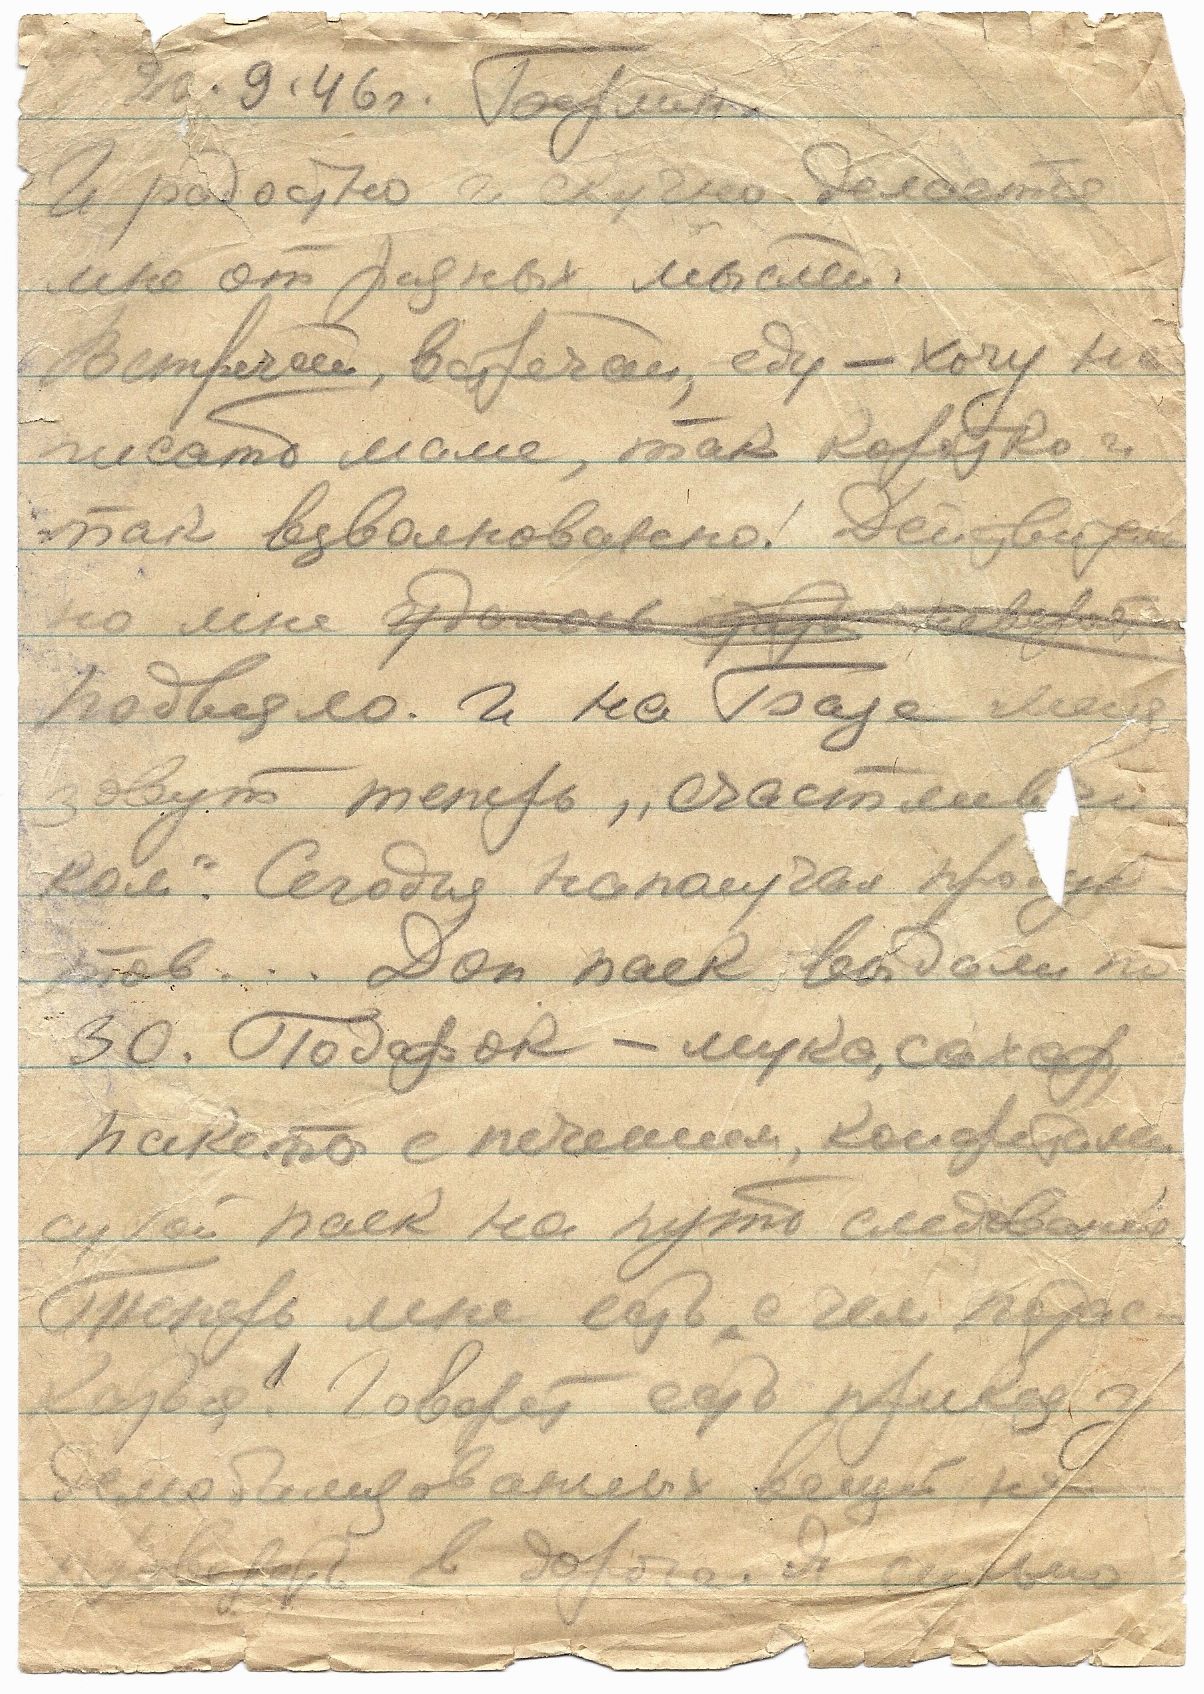 30.9.46г. Берлин.
И радостно и скучно делается
мне от разных мыслей.
Встречай, встречай, еду — хочу на
писать маме, так коротко и
так взволнованно! Действитель
но мне
подвезло. И на Базе меня
зовут теперь „счастливчи
ком". Сегодня наполучал продук
тов... Доп паек выдали по
30. Подарок — мука, сахар,
пакеты с печеньем, конфетами
сухой паек на путь следования
Теперь мне есть с чем потас-
каться! Говорят есть приказ у
демобилизованных вещей не
проверять в дороге. Я сильно